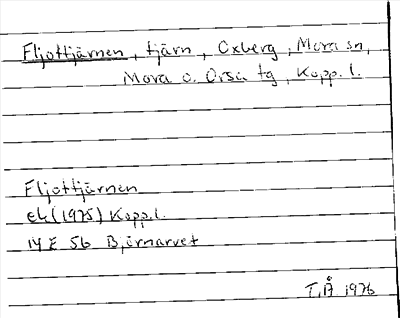 Fljottjärnen, tjärn, Oxberg, Mora sn,
Mora o. Orsa tg, Kopp. l.
Fljottjärnen
ek (1975) Kopp. l.
14 E 5b Björnarvet
T.Å 1976